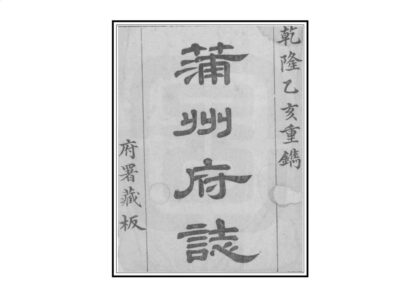 乾隆乙亥重鐫
蒲州府誌
府署藏板